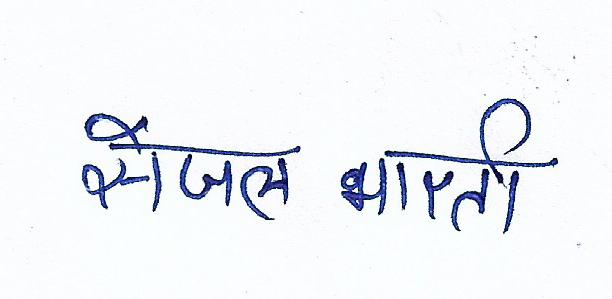 सेजल भारती